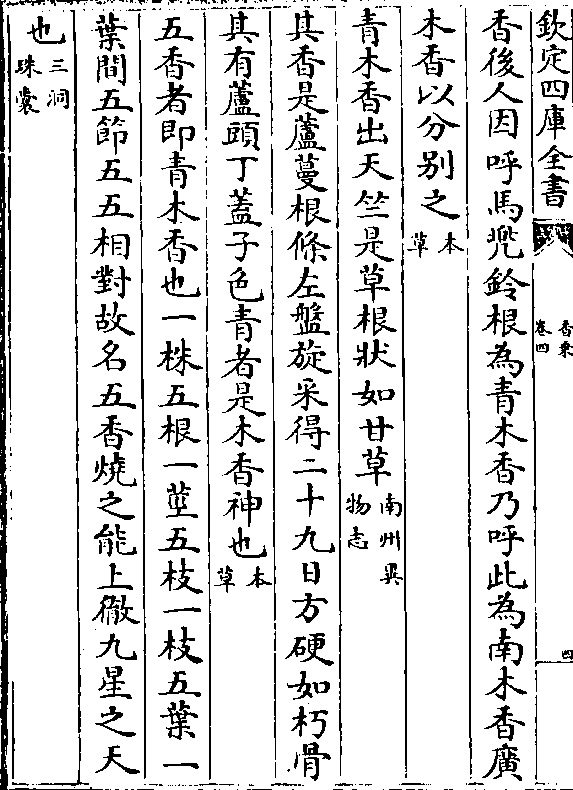 欽定四庫全書
香乘
卷四
四
香後人因呼馬兜鈴根為青木香乃呼此為南木香廣
木香以分别之本草
青木香出天竺是草根狀如甘草南州異物志
其香是蘆蔓根條左盤旋采得二十九日方硬如朽骨
其有蘆頭丁蓋子色青者是木香神也本草
五香者即青木香也一株五根一莖五枝一枝五葉一
葉間五節五五相對故名五香燒之能上徹九星之天
也三洞珠囊